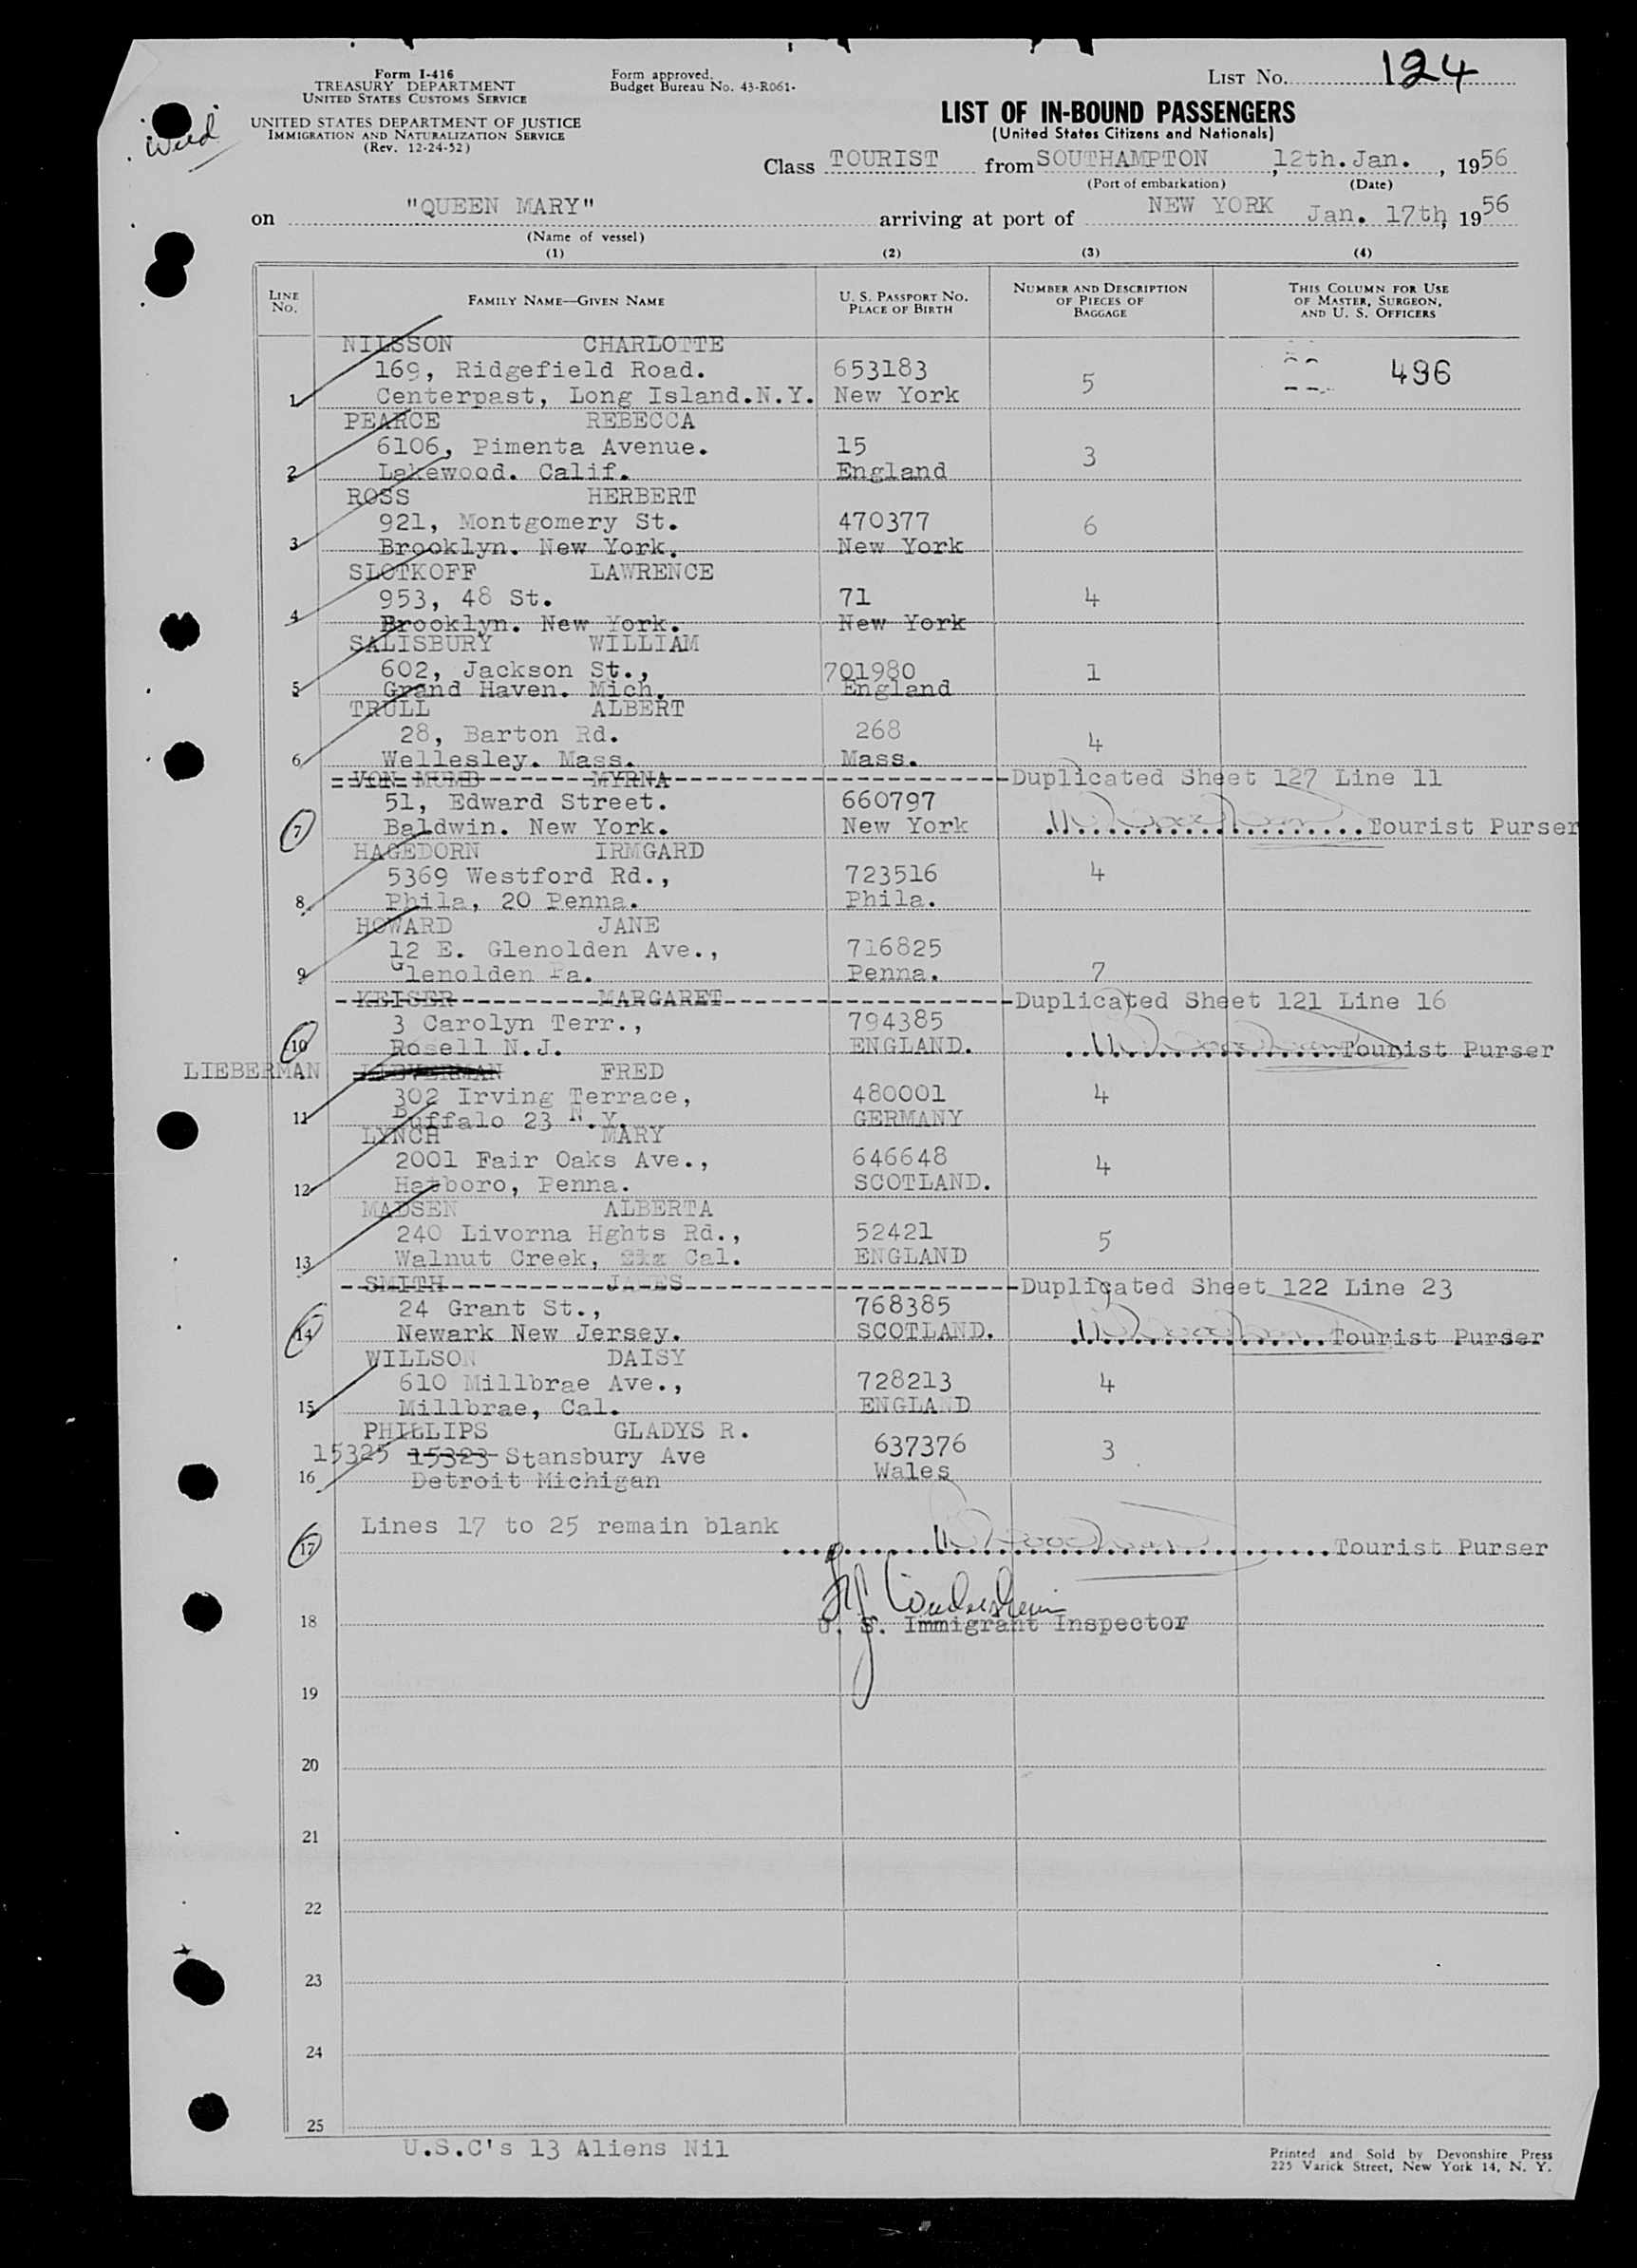 Form I-416
TREASURY DEPARTMENT
UNITED STATES CUSTOMS SERVICE
UNITED STATES DEPARTMENT OF JUSTICE
IMMIGRATION AND NATURALIZATION SERVICE
(Rev. 12-24-52)
Form approved.
Budget Bureau No. 43-R061-
LIST NO. 124
Wed
LIST OF IN-BOUND PASSENGERS
(United States Citizens and Nationals)
Class TOURIST from SOUTHAMPTON, 12th. Jan., 1956
(Port of embarkation) (Date)
on "QUEEN MARY" arriving at port of NEW YORK Jan. 17th, 1956
(Name of vessel)
(1) (2) (3) (4)
LINE NO. FAMILY NAME—GIVEN NAME U. S. PASSPORT NO. PLACE OF BIRTH NUMBER AND DESCRIPTION OF PIECES OF BAGGAGE THIS COLUMN FOR USE OF MASTER, SURGEON, AND U. S. OFFICERS
NILSSON CHARLOTTE
169, Ridgefield Road. 653183 5 496
1 Centerpast, Long Island.N.Y. New York
PEARCE REBECCA
6106, Pimenta Avenue. 15 3
2 Lakewood. Calif. England
ROSS HERBERT
921, Montgomery St. 470377 6
3 Brooklyn. New York. New York
SLOTKOFF LAWRENCE
953, 48 St. 71 4
4 Brooklyn. New York. New York
SALISBURY WILLIAM
602, Jackson St., 701980 1
5 Grand Haven. Mich. England
TRULL ALBERT
28, Barton Rd. 268 4
6 Wellesley. Mass. Mass.
VON MUMB MYRNA Duplicated Sheet 127 Line 11
51, Edward Street. 660797
7 Baldwin. New York. New York Tourist Purser
HAGEDORN IRMGARD
5369 Westford Rd., 723516 4
8 Phila, 20 Penna. Phila.
HOWARD JANE
12 E. Glenolden Ave., 716825
9 Glenolden Pa. Penna. 7
KEISER MARGARET Duplicated Sheet 121 Line 16
3 Carolyn Terr., 794385
10 Rosell N.J. ENGLAND. Tourist Purser
LIEBERMAN LIEVERMAN FRED
302 Irving Terrace, 480001 4
11 Buffalo 23 N.Y. GERMANY
LYNCH MARY
2001 Fair Oaks Ave., 646648 4
12 Hatboro, Penna. SCOTLAND.
MADSEN ALBERTA
240 Livorna Hghts Rd., 52421 5
13 Walnut Creek, Cal. ENGLAND
SMITH JAMES Duplicated Sheet 122 Line 23
24 Grant St., 768385
14 Newark New Jersey. SCOTLAND. Tourist Purser
WILLSON DAISY
610 Millbrae Ave., 728213 4
15 Millbrae, Cal. ENGLAND
PHILLIPS GLADYS R.
15325 15323 Stansbury Ave 637376 3
16 Detroit Michigan Wales
Lines 17 to 25 remain blank
17 Tourist Purser
18 U. S. Immigrant Inspector
19
20
21
22
23
24
25
U.S.C's 13 Aliens Nil
Printed and Sold by Devonshire Press
225 Varick Street, New York 14, N. Y.